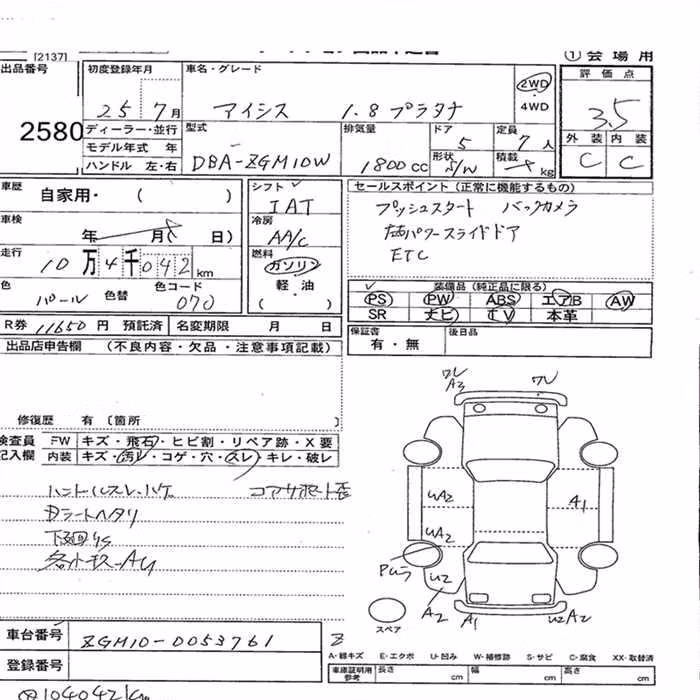 [2137]
① 会場用
出品番号
2580
初度登録年月
25 7月
車名・グレード
アイシス 1.8 プラタナ
2WD
4WD
評価点
3.5
外装 内装
C C
ディーラー・並行
モデル年式 年
ハンドル 左・右
型式
DBA-ZGM10W
排気量
1800cc
ドア
5
形状
S/W
定員
7人
積載
kg
車歴
自家用・( )
車検
年 月( 日)
走行
10万4千042km
色
パール
色替
色コード
070
シフト
IAT
冷房
AA/C
燃料
ガソリン
軽・油
( ・ )
セールスポイント(正常に機能するもの)
プッシュスタート バックカメラ
両パワースライドドア
ETC
装備品(純正品に限る)
PS PW ABS エアB AW
SR ナビ TV 本革
R券 11650円 預託済 名変期限 月 日
保証書
有・無
後日品
出品店申告欄 (不良内容・欠品・注意事項記載)
修復歴 有 〔箇所 〕
検査員
記入欄
FW キズ・飛石・ヒビ割・リペア跡・X要
内装 キズ・汚レ・コゲ・穴・スレ・キレ・破レ
ハンドルスレ・ハゲ コアサポート歪
Dシートヘタリ
下廻りS
ワレ
A3
ワレ
UA2
A1
UA2
U2
A2
A1
U2A2
スペア
車台番号
ZGM10-0053761
登録番号
A-線キズ E-エクボ U-凹み W-補修跡 S-サビ C-腐食 XX-取替済
車庫証明用
参考
長さ cm 幅 cm 高さ cm